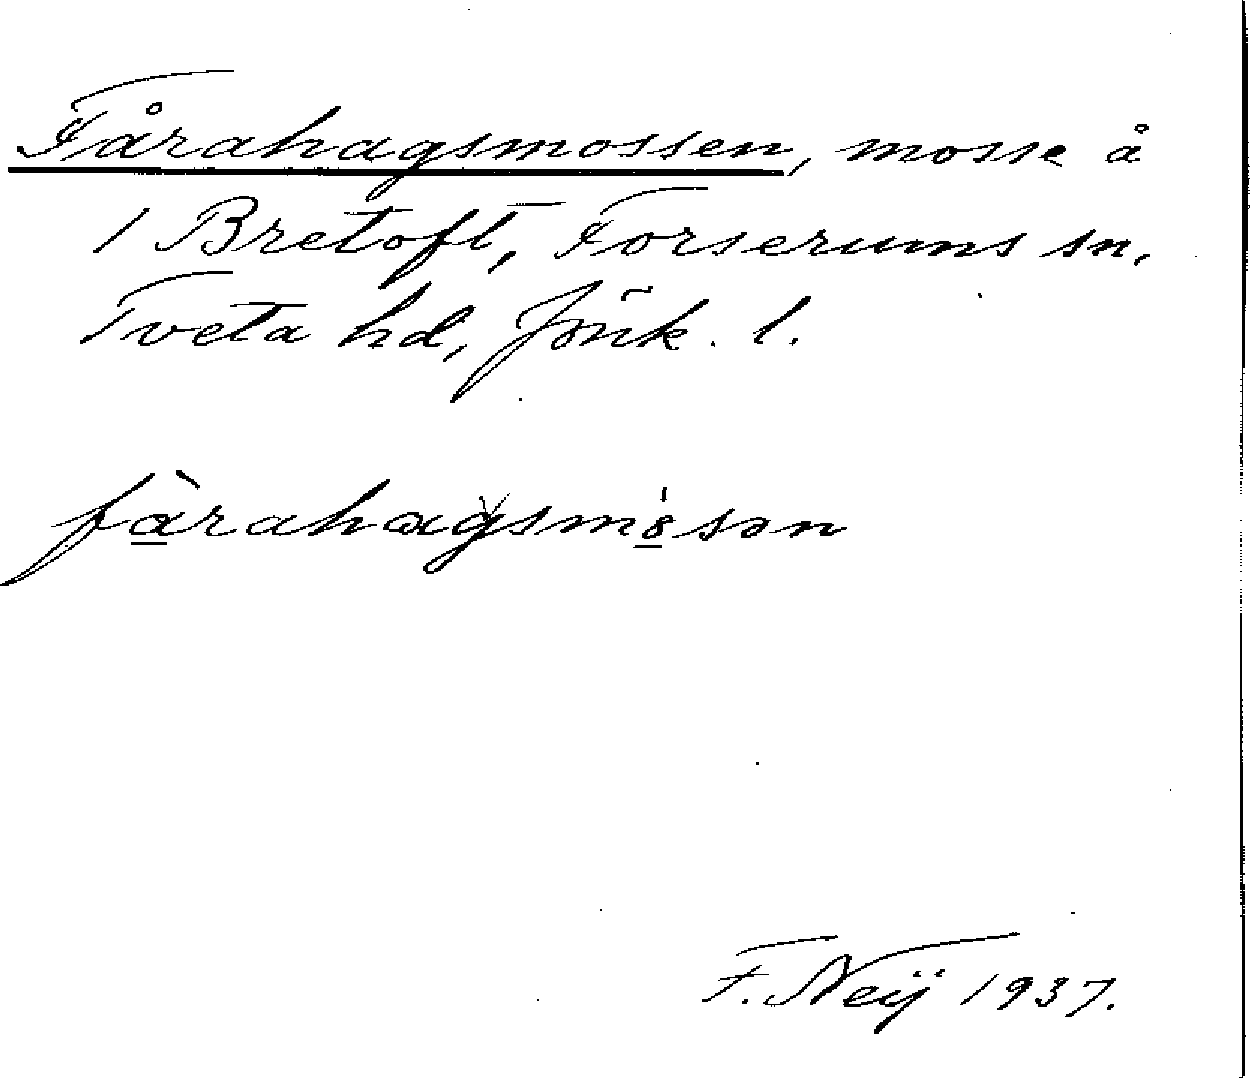 Fårahagsmossen, mosse å
1 Bretoft, Forserums sn,
Tveta hd, Jönk. l.
fàrahagsmósən
F. Neij 1937.